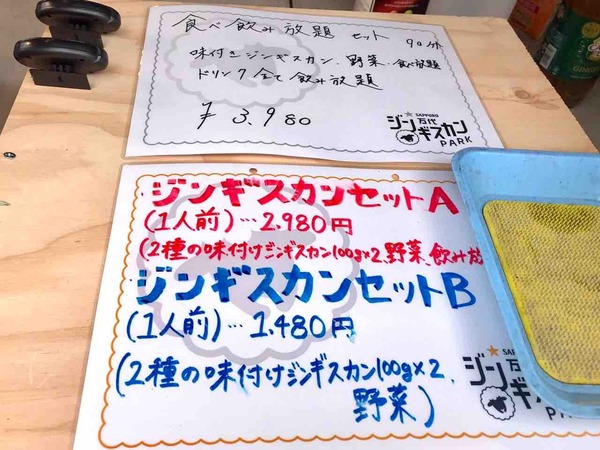 食べ飲み放題 セット 90分
味付きジンギスカン、野菜、食べ放題
ドリンク全て飲み放題
¥3,980
SAPPORO
万代
ジンギスカン
PARK
ジンギスカンセットA
(1人前)…2,980円
(2種の味付けジンギスカン100g×2、野菜、飲み放
ジンギスカンセットB
(1人前)…1,480円
(2種の味付けジンギスカン100g×2、
野菜)
SAPP
万代
ジンギス
PARK